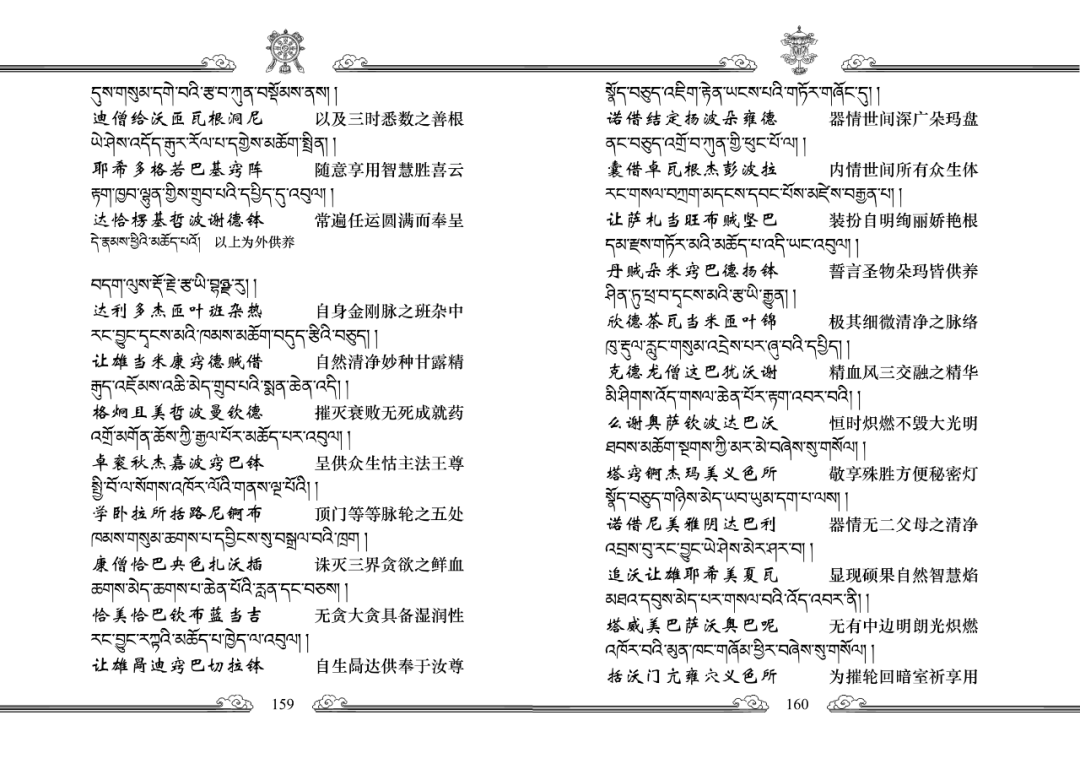 དུས་གསུམ་དགེ་བའི་རྩ་བ་ཀུན་བསྡོམས་ནས། །
迪僧给沃匝瓦根洞尼 以及三时悉数之善根
ཡེ་ཤེས་འདོད་རྒུར་རོལ་པ་དགྱེས་མཆོག་སྤྲིན། །
耶希多格若巴基窍阵 随意享用智慧胜喜云
རྟག་ཁྱབ་ལྷུན་གྱིས་གྲུབ་པའི་དཔྱིད་དུ་འབུལ། །
达恰楞基哲波谢德钵 常遍任运圆满而奉呈
དེ་རྣམས་ཕྱིའི་མཆོད་པའོ། 以上为外供养
བདག་ལུས་རྡོ་རྗེ་རྩ་ཡི་བྷཉྫ་རུ། །
达利多杰匝叶班杂热 自身金刚脉之班杂中
རང་བྱུང་དྭངས་མའི་ཁམས་མཆོག་བདུད་རྩིའི་བཅུད། །
让雄当米康窍德贼借 自然清净妙种甘露精
རྒུད་འཇོམས་འཆི་མེད་གྲུབ་པའི་སྨན་ཆེན་འདི། །
格炯且美哲波曼钦德 摧灭衰败无死成就药
འགྲོ་མགོན་ཆོས་ཀྱི་རྒྱལ་པོར་མཆོད་པར་འབུལ། །
卓衮秋杰嘉波窍巴钵 呈供众生怙主法王尊
སྤྱི་བོ་ལ་སོགས་འཁོར་ལོའི་གནས་ལྔ་པོའི། །
学卧拉所括路尼锕布 顶门等等脉轮之五处
ཁམས་གསུམ་ཆགས་པ་དབྱིངས་སུ་བསྒྲལ་བའི་ཁྲག །
康僧恰巴央色扎沃插 诛灭三界贪欲之鲜血
ཆགས་མེད་ཆགས་པ་ཆེན་པོའི་རླན་དང་བཅས། །
恰美恰巴钦布蓝当吉 无贪大贪具备湿润性
རང་བྱུང་རཀྟའི་མཆོད་པ་ཁྱེད་ལ་འབུལ། །
让雄咼迪窍巴切拉钵 自生咼达供奉于汝尊
159
སྣོད་བཅུད་འཇིག་རྟེན་ཡངས་པའི་གཏོར་གཞོང་དུ། །
诺借结定扬波朵雍德 器情世间深广朵玛盘
ནང་བཅུད་འགྲོ་བ་ཀུན་གྱི་ཕུང་པོ་ལ། །
囊借卓瓦根杰彭波拉 内情世间所有众生体
རང་གསལ་བཀྲག་མདངས་དབང་པོས་མཛེས་བརྒྱན་པ། །
让萨札当旺布贼坚巴 装扮自明绚丽娇艳根
དམ་རྫས་གཏོར་མའི་མཆོད་པ་འདི་ཡང་འབུལ། །
丹贼朵米窍巴德扬钵 誓言圣物朵玛皆供养
ཤིན་ཏུ་ཕྲ་བ་དྭངས་མའི་རྩ་ཡི་རྒྱུན། །
欣德茶瓦当米匝叶锦 极其细微清净之脉络
ཁུ་རྡུལ་རླུང་གསུམ་འདྲེས་པར་ཞུ་བའི་དཔྱིད། །
克德龙僧这巴犹沃谢 精血风三交融之精华
མི་ཤིགས་འོད་གསལ་ཆེན་པོར་རྟག་འབར་བའི། །
么谢奥萨钦波达巴沃 恒时炽燃不毁大光明
ཐབས་མཆོག་སྔགས་ཀྱི་མར་མེ་བཞེས་སུ་གསོལ། །
塔窍锕杰玛美义色所 敬享殊胜方便秘密灯
སྣོད་བཅུད་གཉིས་མེད་ཡབ་ཡུམ་དག་པ་ལས། །
诺借尼美雅阴达巴利 器情无二父母之清净
འབྲས་བུ་རང་བྱུང་ཡེ་ཤེས་མེར་ཤར་བ། །
追沃让雄耶希美夏瓦 显现硕果自然智慧焰
མཐའ་དབུས་མེད་པར་གསལ་བའི་འོད་འབར་ནི། །
塔威美巴萨沃奥巴呢 无有中边明朗光炽燃
འཁོར་བའི་མུན་ཁང་གཞོམ་ཕྱིར་བཞེས་སུ་གསོལ། །
括沃门亢雍穴义色所 为摧轮回暗室祈享用
160